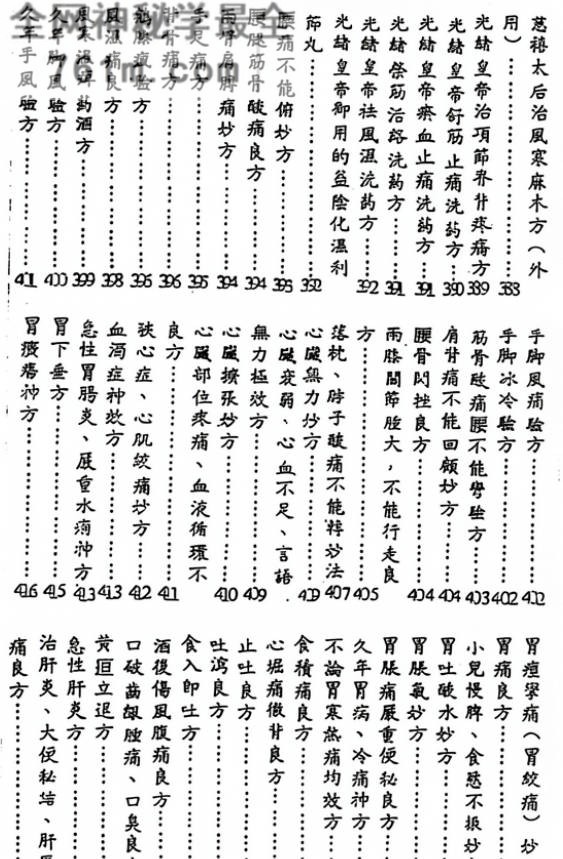 慈禧太后治風寒麻木方（外
用）……388
光緒皇帝治項節脊骨疼痛方 389
光緒皇帝舒筋止痛洗葯方……390
光緒皇帝瘀血止痛洗葯方……391
光緒榮筋活絡洗葯方……391
光緒皇帝祛風濕洗葯方……392
光緒皇帝御用的益陰化濕利
節丸……392
腰痛不能俯妙方……393
腰腿筋骨酸痛良方……394
兩骨肩脾痛妙方……394
手足痛方……395
背骨痛方……396
鶴膝瘋驗方……396
風濕痛良方……398
風木濕痺葯酒方……399
久年脚風驗方……400
久年手風驗方……401
手脚風痛驗方……402
手脚冰冷驗方……402
筋骨酸痛腰不能彎驗方……403
肩背痛不能回頭妙方……404
腰骨閃挫良方……404
兩膝關節腫大，不能行走良
方……405
落枕、脖子酸痛不能轉妙法 407
心臟無力妙方……409
心臟衰弱、心血不足、言語
無力極效方……409
心臟擴張妙方……410
心臟部位疼痛、血液循環不
良方……411
狹心症、心肌絞痛妙方……412
血濁症神效方……413
急性胃腸炎、嚴重水瀉神方 413
胃下垂方……415
胃潰瘍神方……416
胃痙攣痛（胃絞痛）妙
胃痛良方……
小兒慢脾、食慾不振妙
胃吐破水妙方……
胃脹氣妙方……
胃脹痛嚴重便秘良方…
久年胃病、冷痛神方…
不論胃寒熱痛均效方…
食積痛良方……
心堀痛徹背良方……
止吐良方……
吐瀉良方……
食入即吐方……
酒後傷風腹痛良方……
口破齒齦腫痛、口臭良
黃疸立退方……
急性肝炎方……
治肝炎、大便秘結、肝
痛良方……